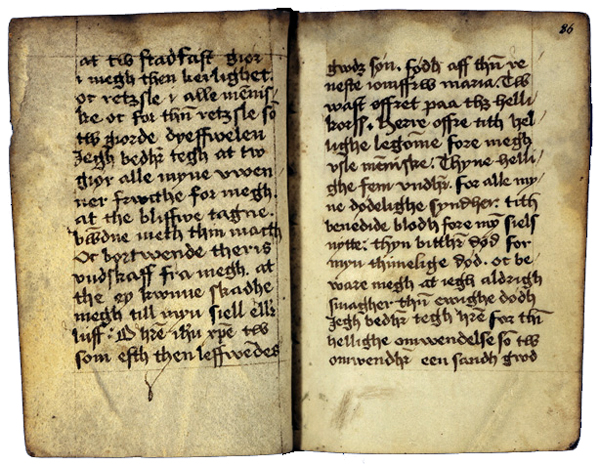 at tw stadfast giør
i megh then kerlighet.
oc retzsle i alle mēnis/
ke oc for thn̄ retzsle sō
tw giorde dyeffwelen
Jegh bedhr̄ tegh at tw
giør alle myne vwen
ner frwcthe for megh.
at the bliffwe tagne.
bwdne meth thin macth
Oc bortwende theris
vndskaff fra megh. at
the ey kwnne skadhe
megh till myn siell ellr̄
liiff. O hr̄e ihū xpe tw
som esth then leffwendes
86
gwdz søn. fødh aff thn̄ re
neste iomffrw maria. Tw
wast offret paa thz helli
korss. Herre offre tith hel/
lighe legōme fore megh
vsle mēniske. Thyne helli/
ghe fem vndhr̄. for alle my/
ne dødelighe syndher. tith
benedide blodh fore my̅ siels
nytte. thyn bitthr̄ død for
myn thimelige død. oc be/
ware megh at iegh aldrigh
smagher thn̄ ewighe dødh
Jegh bedhr̄ tegh hr̄e for thn̄
hellighe omwendelse sō tw
omwendhr̄ een sandh gwd